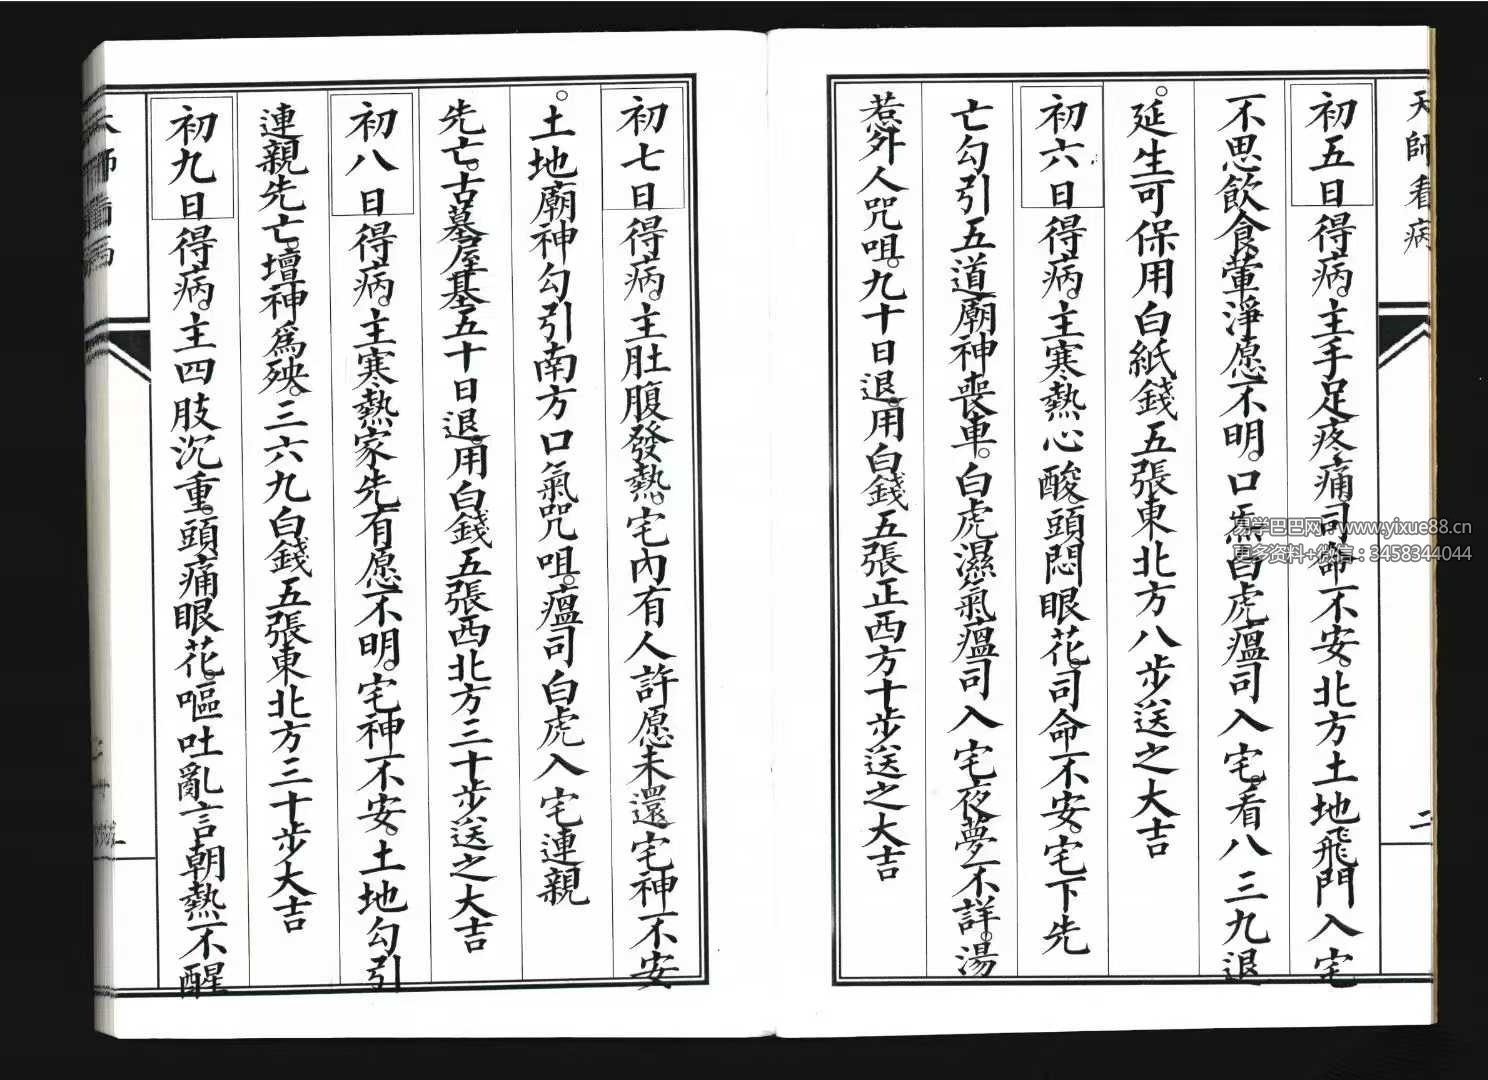 天師看病
初五日得病。主手足疼痛。司命不安。北方土地飛門入宅
不思飲食。葷淨愿不明。口炁白虎瘟司入宅。看八三九退
。延生可保用白紙錢五張東北方八步送之大吉
初六日得病。主寒熱心酸。頭悶眼花。司命不安。宅下先
亡勾引五道廟神喪車。白虎濕氣瘟司入宅夜夢不詳。湯
惹外人咒咀。九十日退。用白錢五張正西方十步送之大吉
二
初七日得病。主肚腹發熱。宅內有人許愿未還。宅神不安
。土地廟神勾引南方口氣咒咀。瘟司白虎入宅連親
先亡。古墓屋基五十日退。用白錢五張西北方三十步送之大吉
初八日得病。主寒熱家先有愿不明。宅神不安。土地勾引
連親先亡。壇神為殃。三六九白錢五張東北方三十步大吉
初九日得病。主四肢沉重。頭痛眼花。嘔吐亂言朝熱不醒
易学巴巴网：www.yixue88.cn
更多资料+微信：3458344044